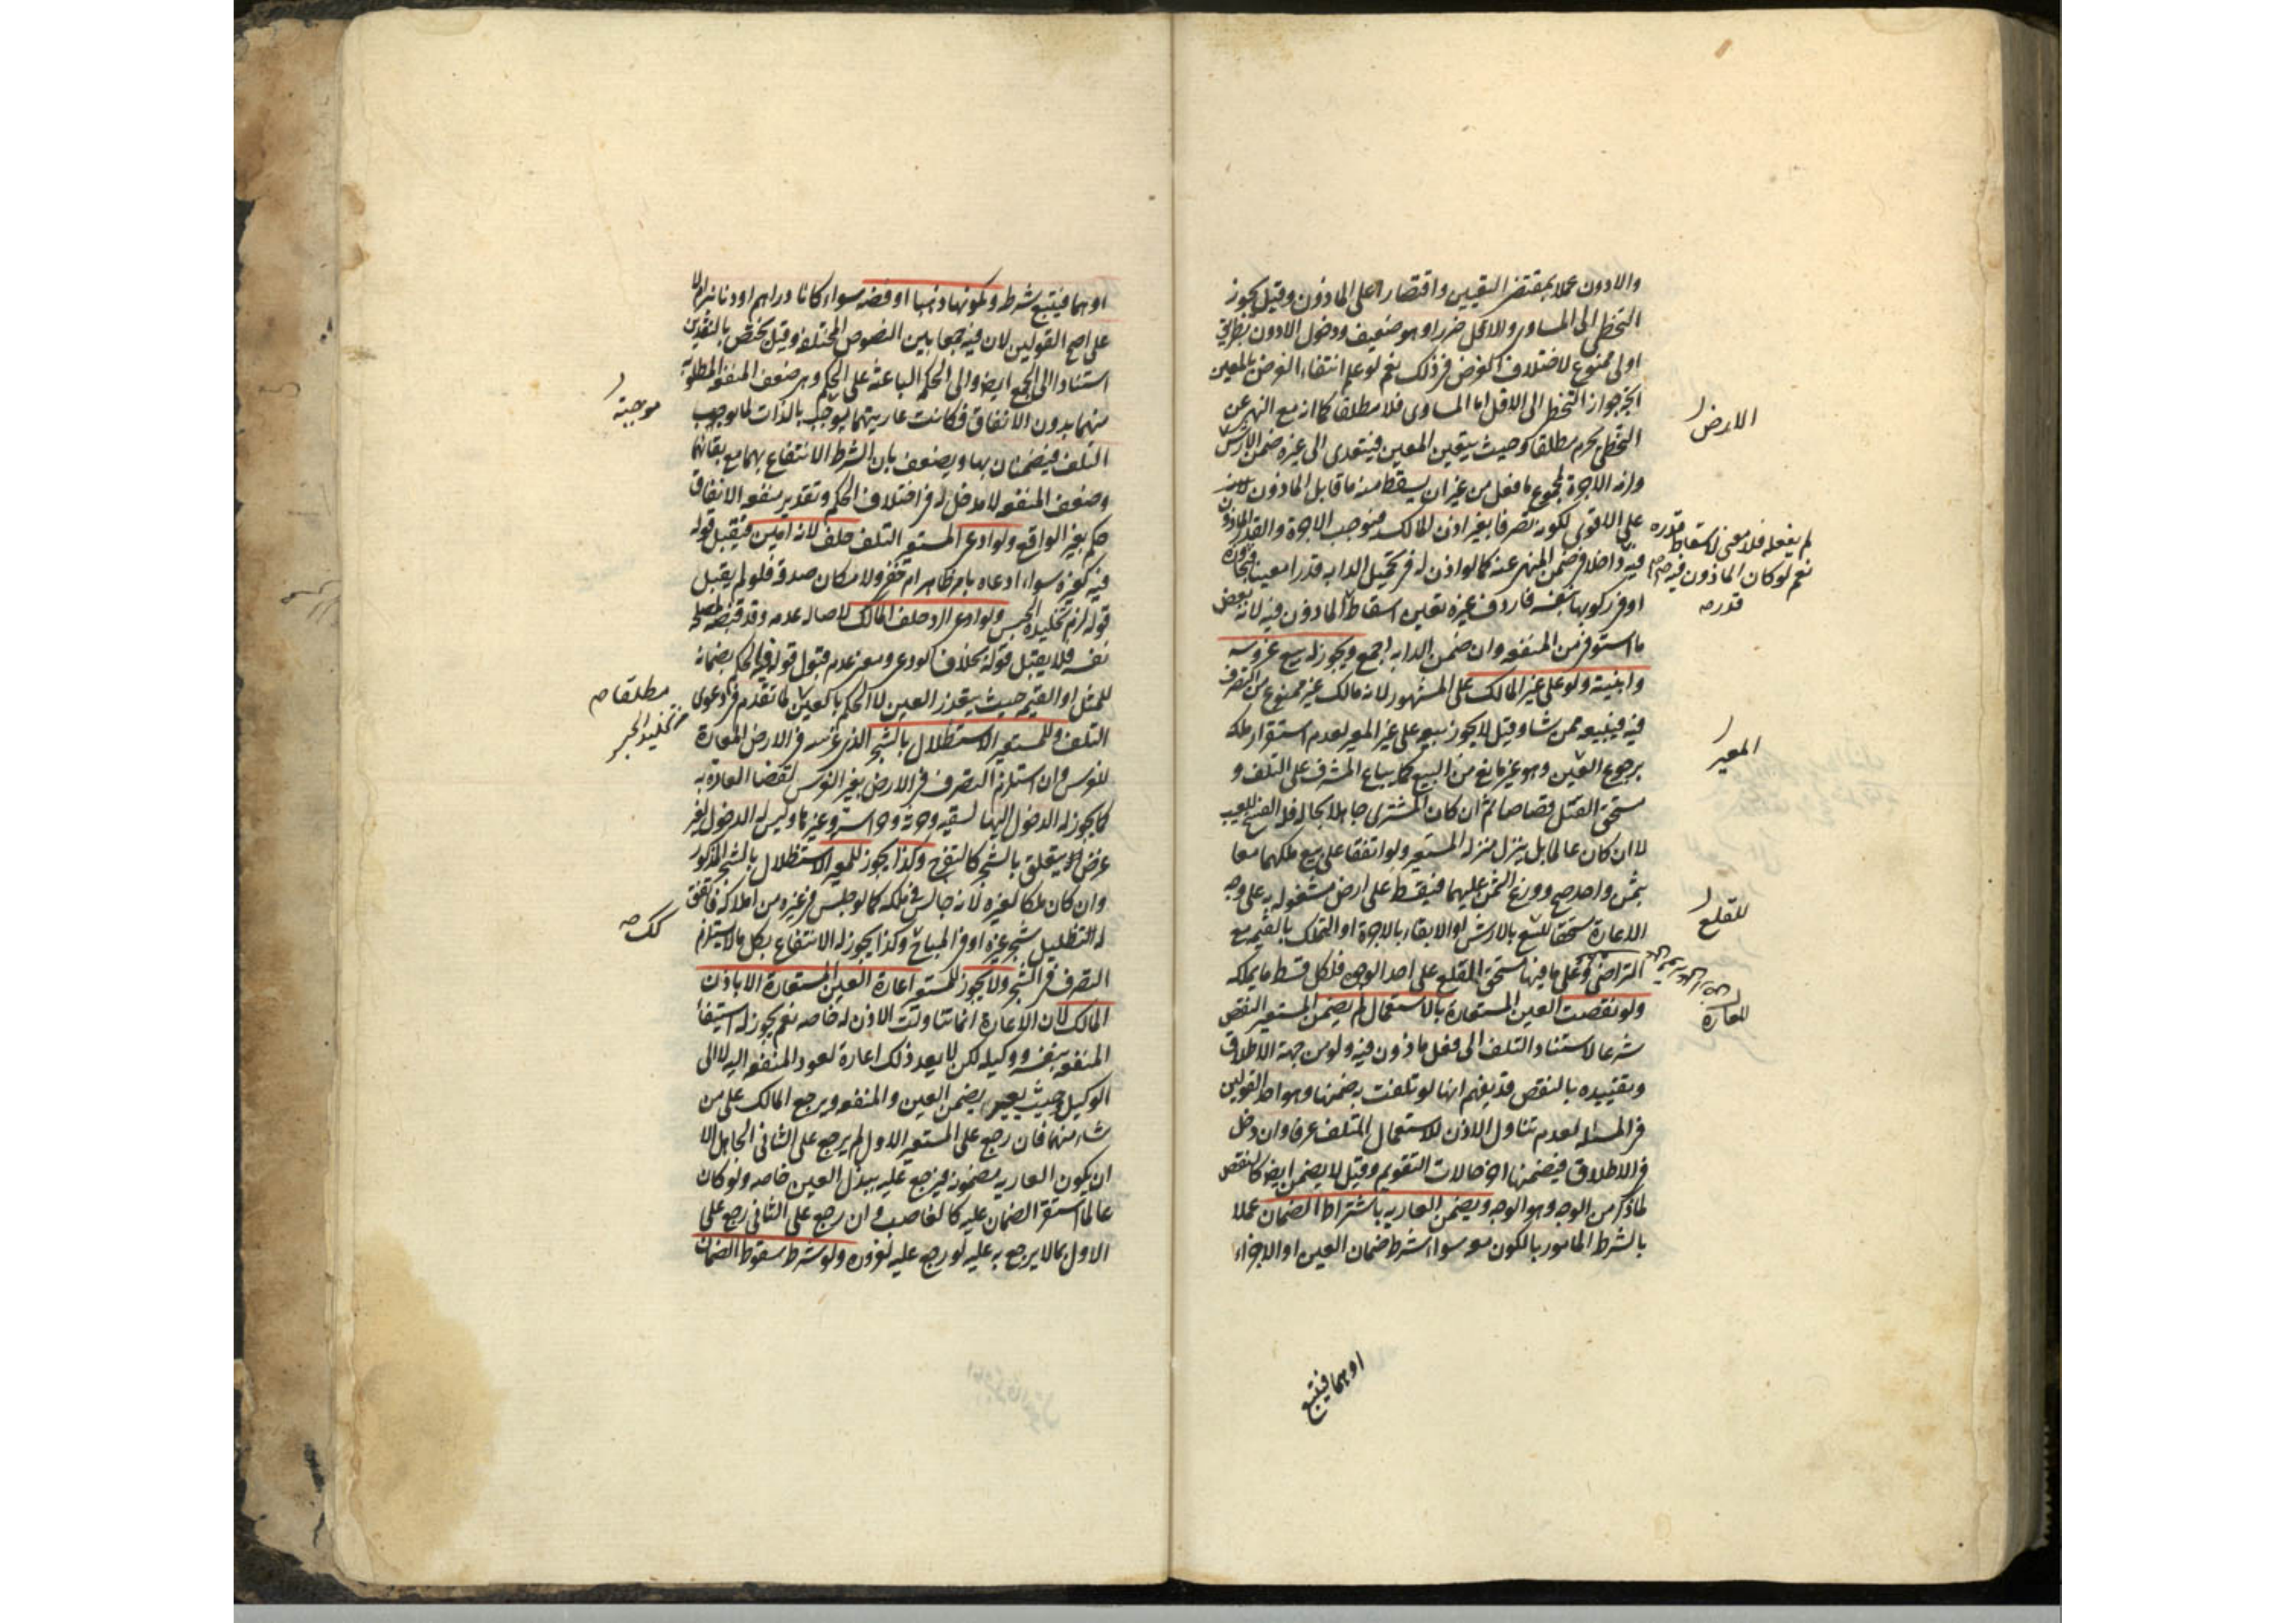 والادون عملا بمقتضى التعيين واقتصارا على الماذون وقيل يجوز
التخطى الى المساوى والاقل ضررا وهو ضعيف ودخول الادون بطريق
اولى ممنوع لاختلاف الغرض فى ذلك نعم لو علم انتفاء الغرض بالمعين
اتجه جواز التخطى الى الاقل اما المساوى فلا مطلقا كما انه مع النهى عن
التخطى يحرم مطلقا وحيث يتعين المعين فيتعدى الى غيره ضمن الارش
ولزمه الاجرة لمجموع ما فعل من غير ان يسقط منه ما قابل الماذون لانه
على الاقوى لكونه تصرفا بغير اذن المالك فيوجب الاجرة والقدر الماذون
فيه داخلا فى ضمن المنهى عنه كما لو اذن له فى تحميل الدابه قدرا معينا فتجاوزه
او فى ركوبها بنفسه فاردف غيره تعين اسقاط الماذون فيه لانه بعض
ما استوفى من المنفعه وان ضمن الدابه اجمع ويجوز له بيع غروسه
وابنيته ولو على غير المالك على المشهور لانه مالك غير ممنوع من التصرف
فيه فيبيعه ممن شاء وقيل لا يجوز بيعه على غير المعير لعدم استقرار ملكه
برجوع المعير وهو غير مانع من البيع كما يباع المشرف على التلف و
مستحق القتل قصاصا ثم ان كان المشترى جاهلا بحاله فله الفسخ للعيب
لا ان كان عالما بل ينزل منزله المستعير ولو اتفقا على بيع ملكهما معا
بثمن واحد صح ووزع الثمن عليهما فيقسط على ارض مشغوله به على وجه
الاعارة مستحقا للقلع بالارش او الابقاء بالاجرة او التملك بالقيمه مع
التراضى وعلى ما فيها مستحق القلع على احد الوجوه فلكل قسط ما يملكه
ولو نقصت العين المستعارة بالاستعمال لم يضمن المستعير النقص
شرعا لاستناد التلف الى فعل ماذون فيه ولو من جهة الاطلاق
وتقييده بالنقص قد يفهم انها لو تلفت به ضمنها وهو احد القولين
فى المساله لعدم تناول الاذن للاستعمال المتلف عرفا وان دخل
فى الاطلاق فيضمنها اخر حالات التقويم وقيل لا يضمن ايضا كالنقص
لما ذكر من الوجه وهو الوجه ويضمن العاريه باشتراط الضمان عملا
بالشرط المامور بالكون معه سواء شرط ضمان العين او الاجزاء
الارض
لم يفعله فلا معنى لاسقاط قدره
نعم لو كان الماذون فيه
المعير
للقلع
للعارة
او هما فيتبع
او هما فيتبع شرطه ولكونها ذهبا او فضه سواء كانا دراهم او دنانير ام لا
على اصح القولين لان فيه جمعا بين النصوص المختلفه وقيل يختص بالنقدين
استنادا الى الجمع ايضا والى الحكمة الباعثه على الحكم وهى ضعف المنفعه المطلوبه
منهما بدون الانفاق فكانت عاريتهما يوجب بالذات لما يوجب
التلف فيضمنان بها ويضعف بان الشرط الانتفاع بهما مع بقائهما
وضعف المنفعه لا مدخل له فى اختلاف الحكم وتقدير منفعه الانفاق
حكم بغير الواقع ولو ادعى المستعير التلف حلف لانه امين فيقبل قوله
فيه كغيره سواء ادعاه بامر ظاهر ام خفى ولامكان صدقه فلو لم يقبل
قوله لزم تخليده الحبس ولو ادعى الرد حلف المالك لاصاله عدمه وقد قبضه لمصلحه
نفسه فلا يقبل قوله بخلاف الودعى ومعنى عدم قبول قوله فيه الحكم بضمانه
للمثل او القيمه حيث يتعذر العين لا الحكم بالعين لما تقدم فى دعوى
التلف وللمستعير الاستظلال بالشجر الذى غرسه فى الارض المعارة
للغرس وان استلزم التصرف فى الارض بغير الغرس لقضاء العادة به
كما يجوز له الدخول اليها لسقيه وحرثه وحراسته وغيرها وليس له الدخول لغير
غرض يتعلق بالشجر كالتفرج وكذا يجوز للمعير الاستظلال بالشجر المذكور
وان كان ملكا لغيره لانه جالس فى ملكه كما لو جلس فى غيره من املاكه فاتفق
له التظليل بشجر غيره او فى المباح وكذا يجوز له الانتفاع بكل ما لا يستلزم
التصرف فى الشجر ولا يجوز للمستعير اعارة العين المستعارة الا باذن
المالك لان الاعارة انما تناولت الاذن له خاصه نعم يجوز له استيفاء
المنفعه بنفسه ووكيله لكن لا يعد ذلك اعارة لعود المنفعه اليه لا الى
الوكيل وحيث يعير يضمن العين والمنفعه ويرجع المالك على من
شاء منهما فان رجع على المستعير الاول لم يرجع على الثانى الجاهل الا
ان يكون العاريه مضمونه فيرجع عليه ببدل العين خاصه ولو كان
عالما استقر الضمان عليه كالغاصب وان رجع على الثانى رجع على
الاول بما لا يرجع به عليه لو رجع عليه لغروره ولو شرط سقوط الضمان
موجبة
مطلقا